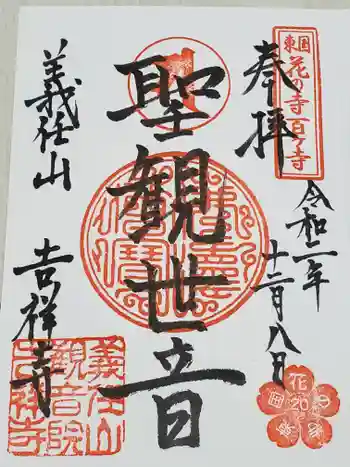 東国
花の寺百ヶ寺
奉拝
令和二年
十二月八日
聖観世音
義任山
吉祥寺
義任山
観音院
吉祥寺
花
20